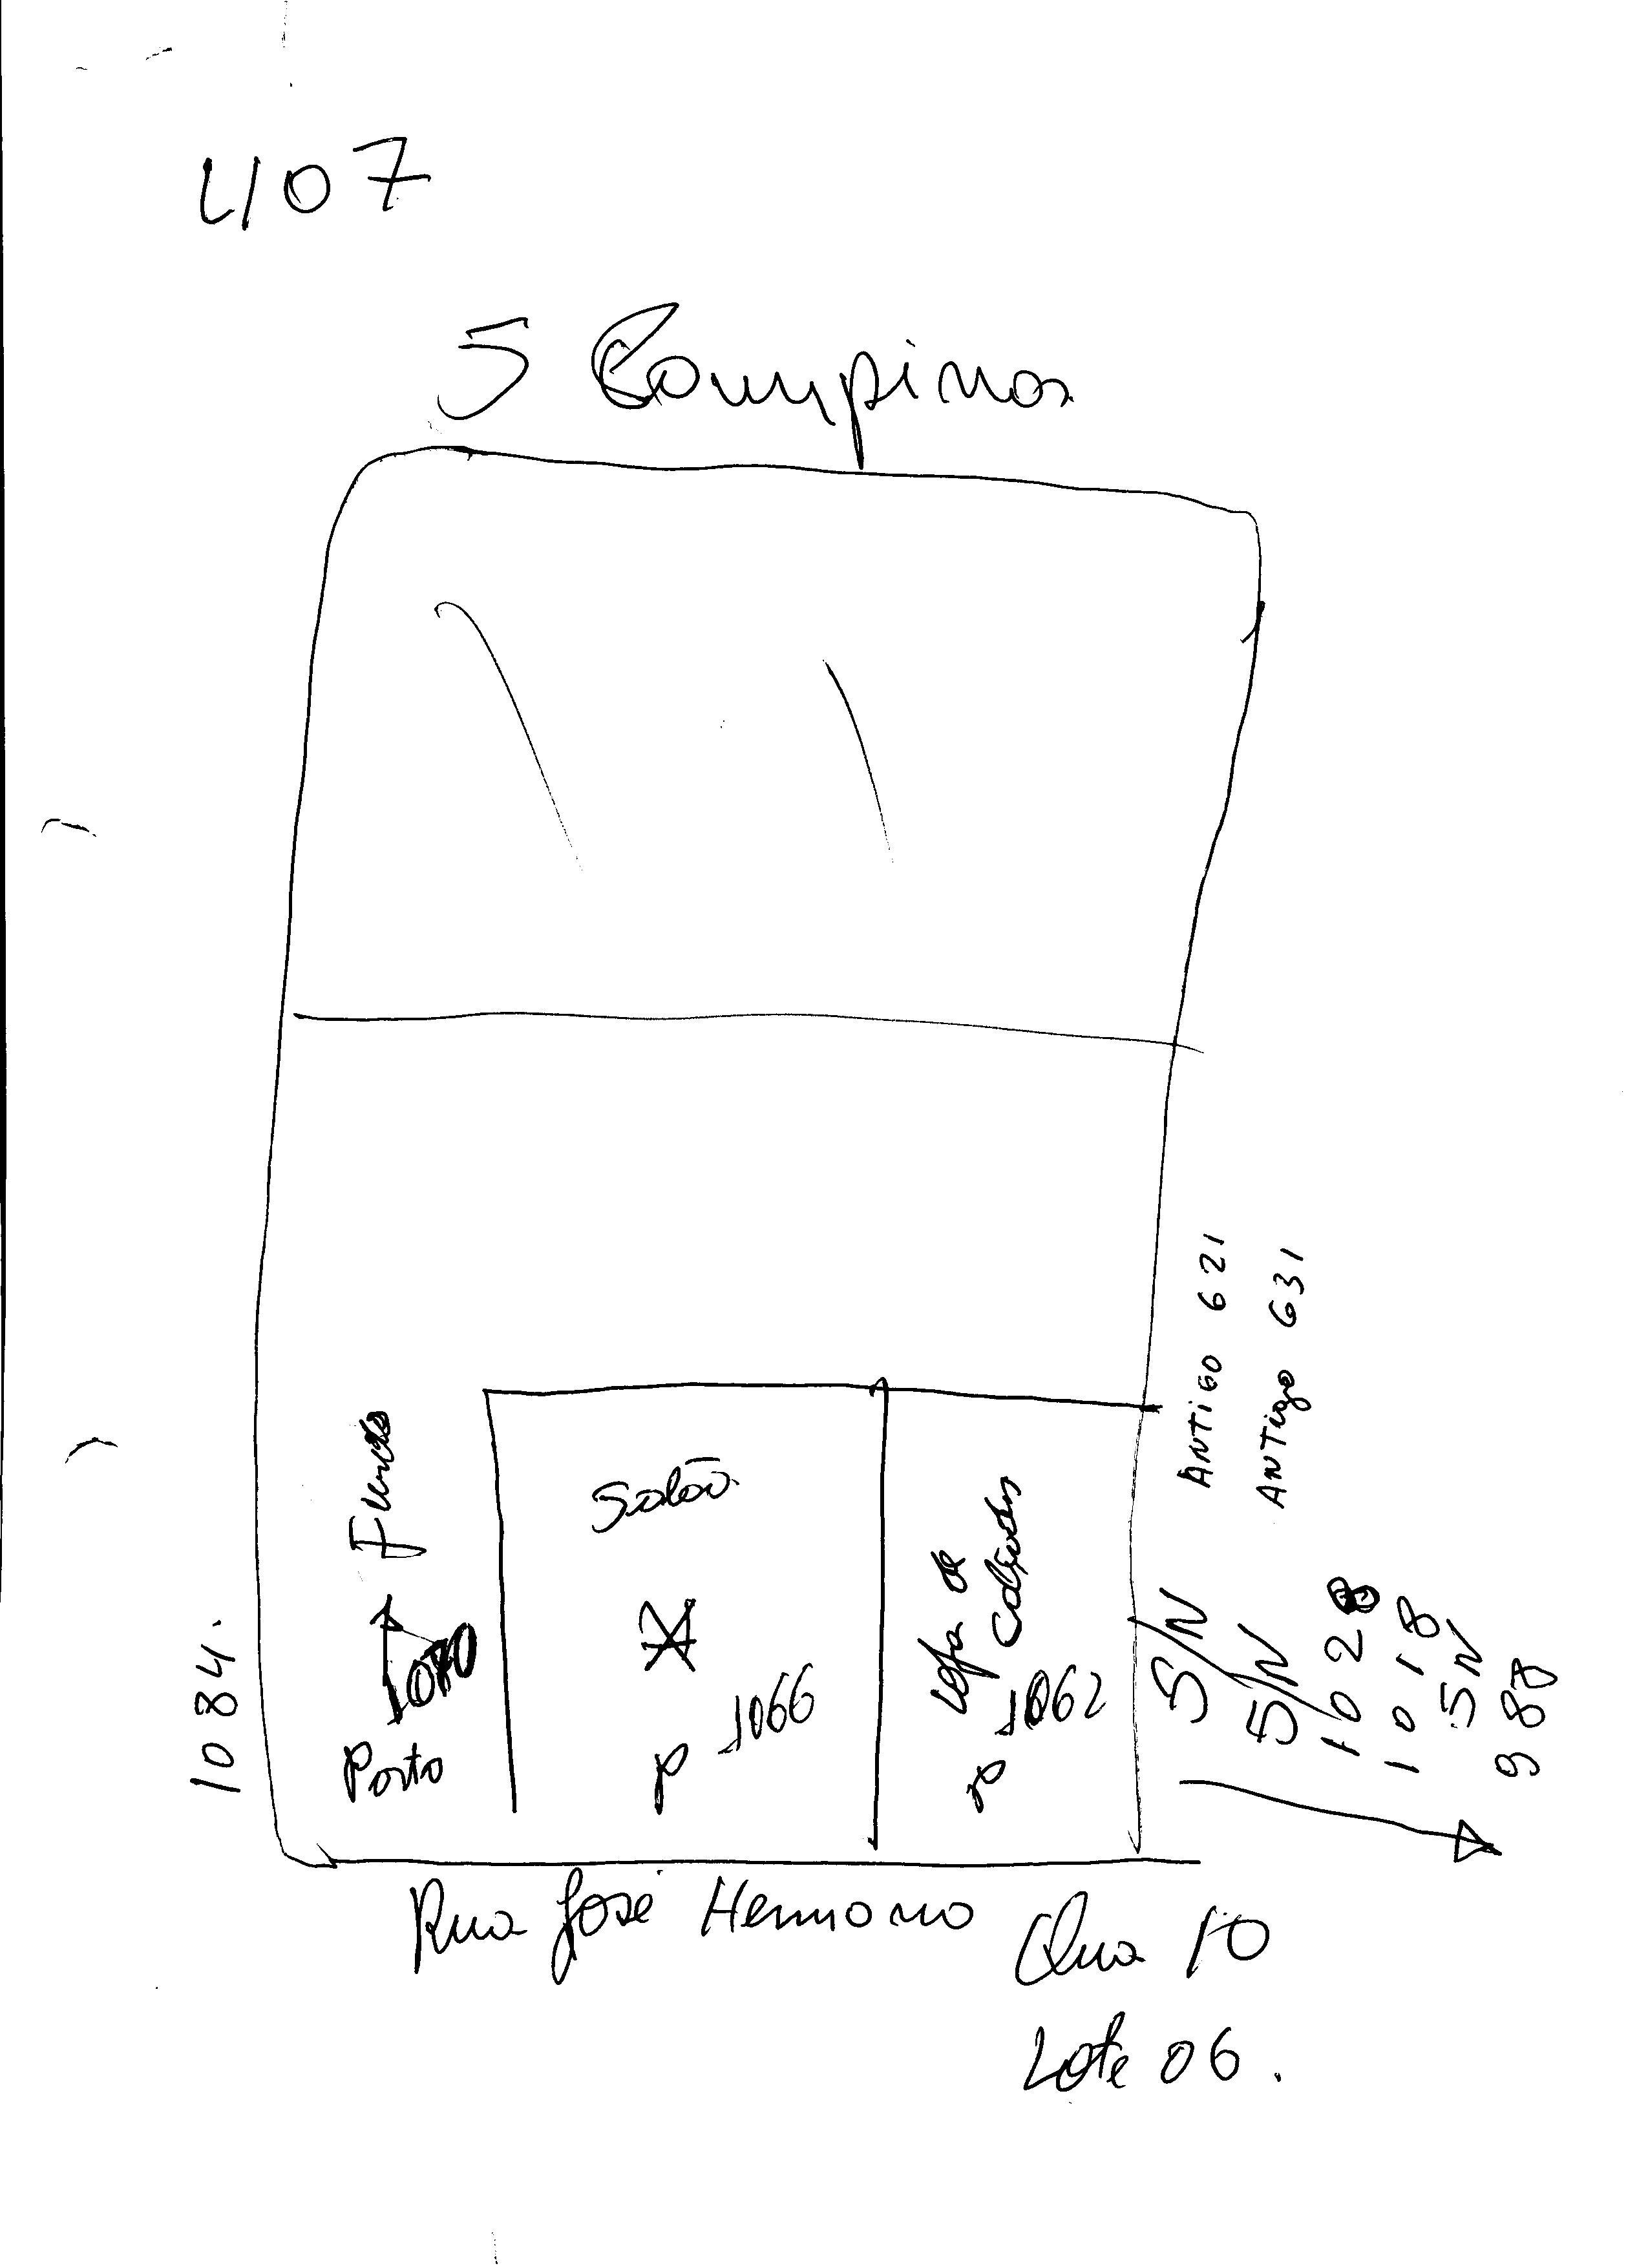 407
5 Campinas
ANTIGO 621
ANTIGO 631
Fundos
Salão
Loja de
Calçados
1084.
1070
1066
1062
S/N
S/N
1028
1018
SN
988
Porta
P
Rua José Hermano
Qua 10
Lote 06.